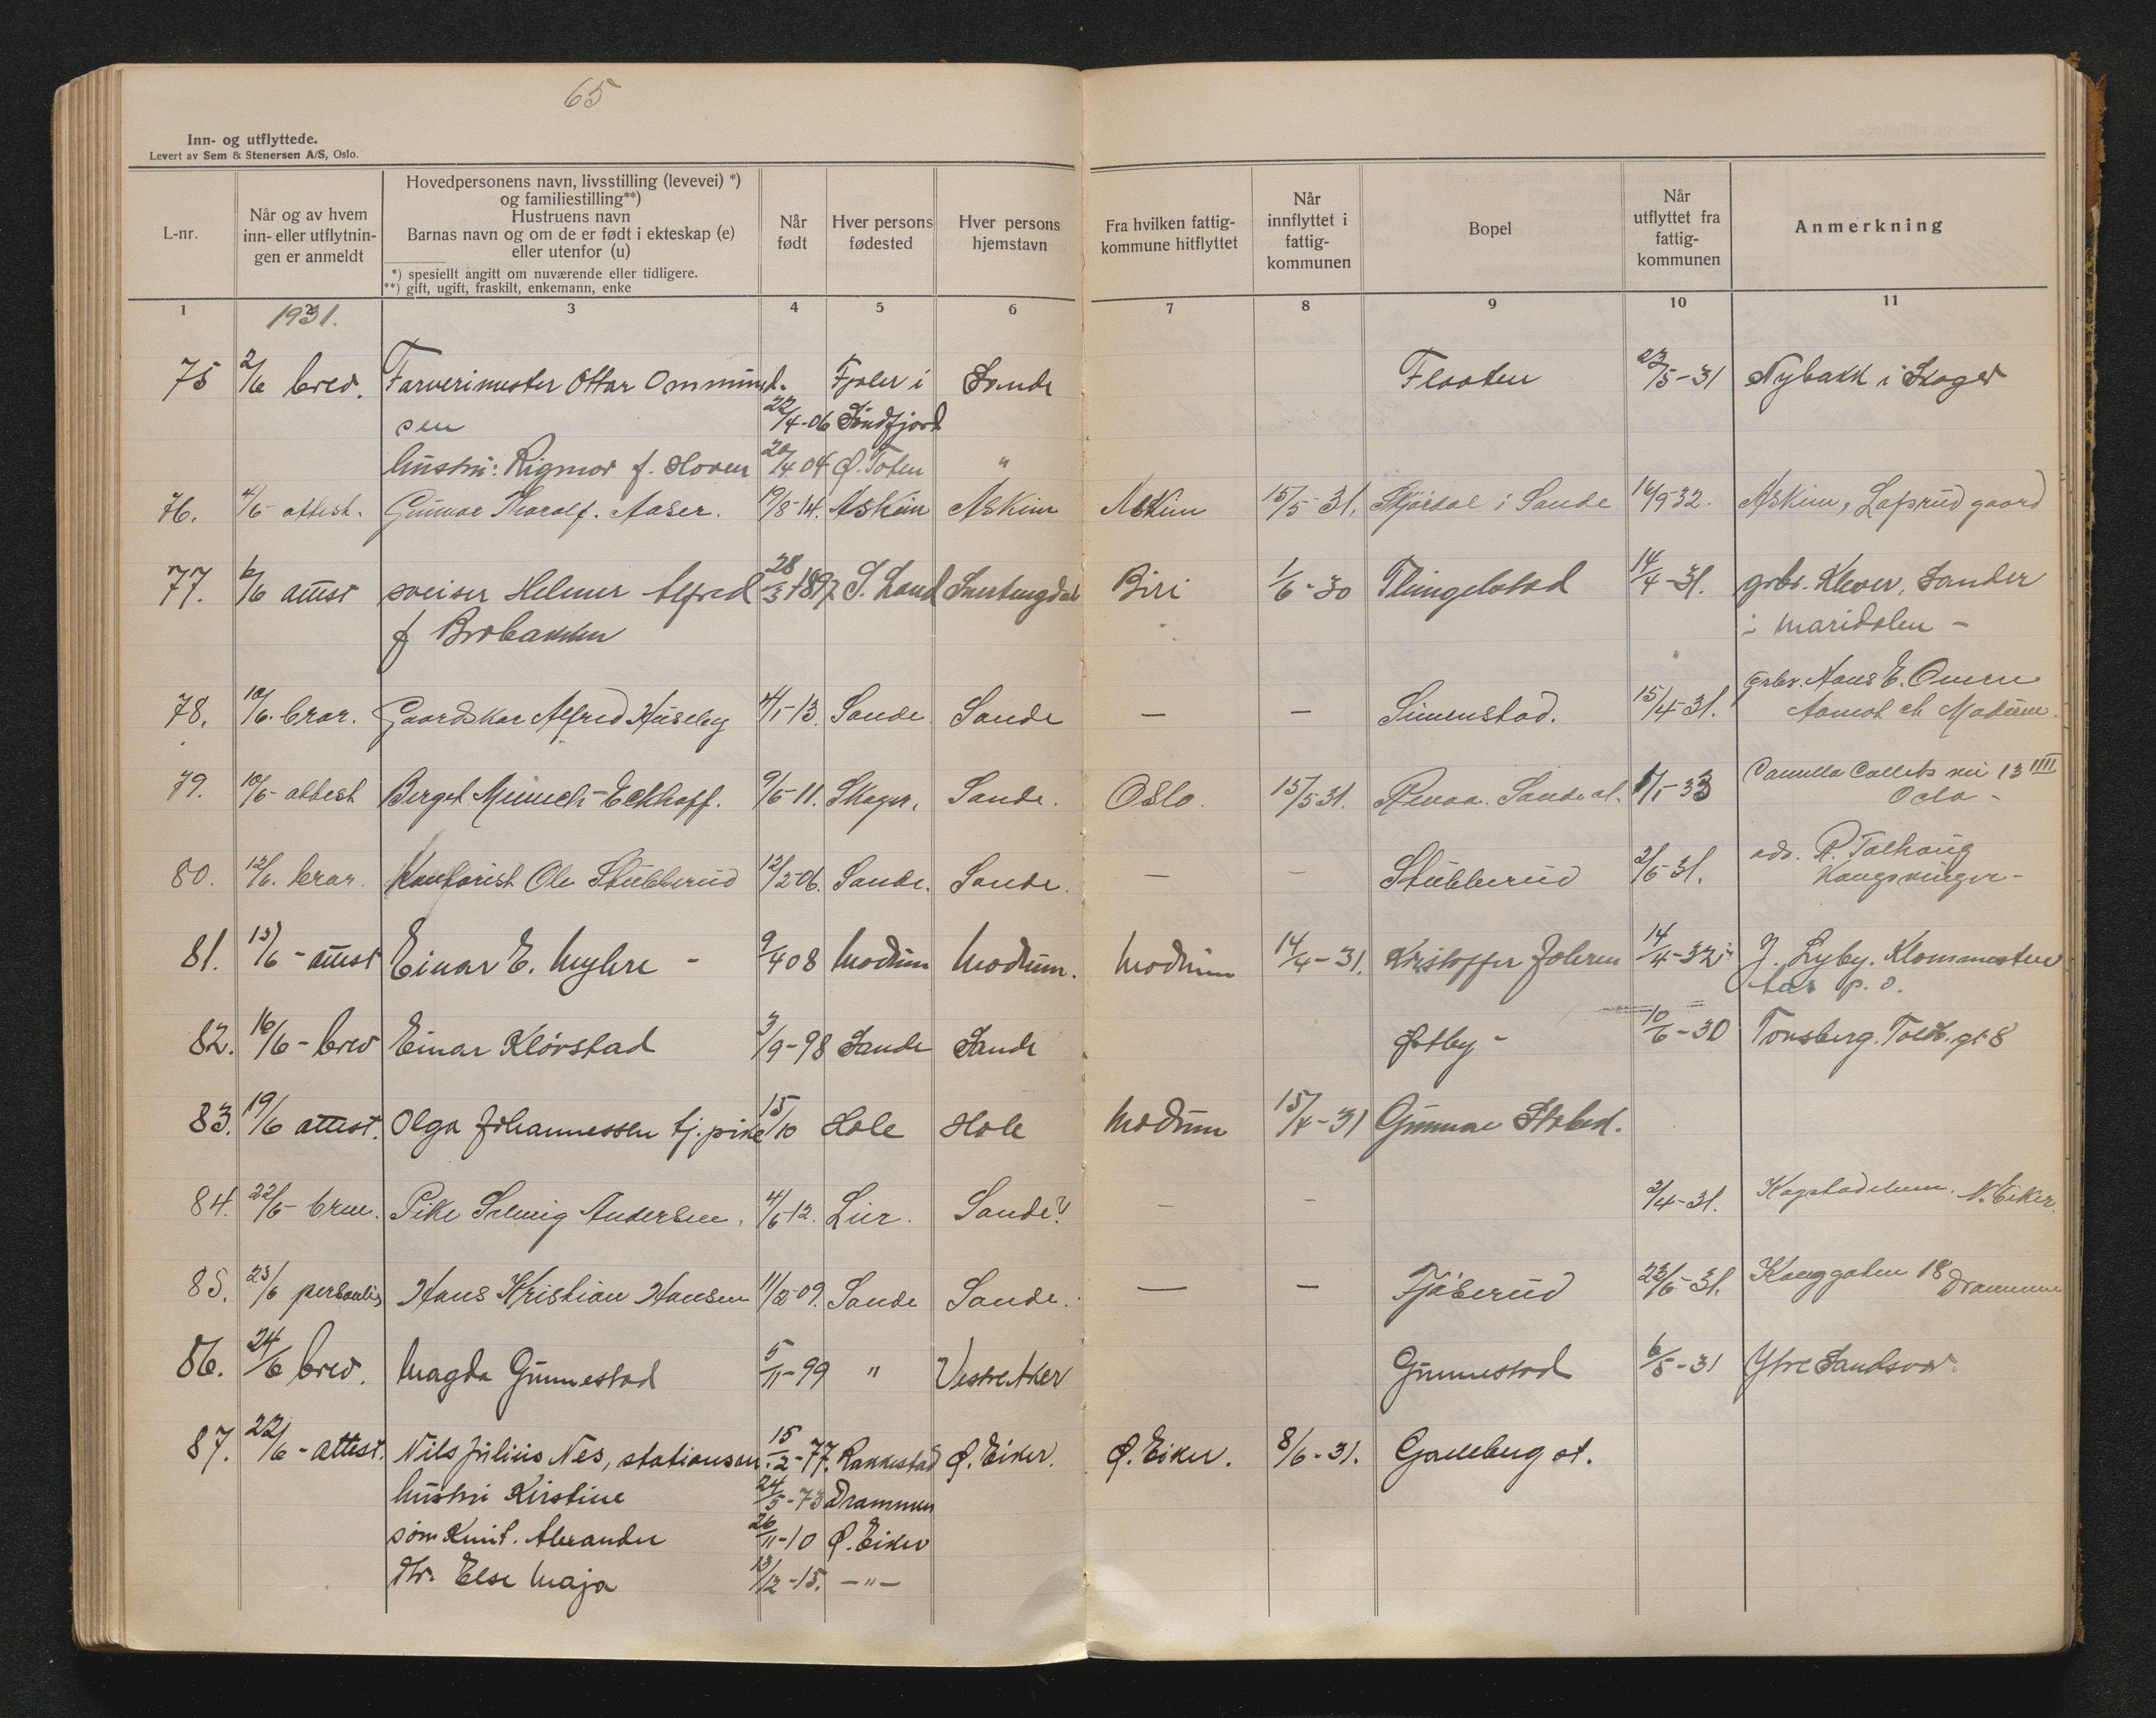 65
Inn- og utflyttede.
Levert av Sem & Stenersen A/S, Oslo.
L-nr.
Når og av hvem inn- eller utflytnin-gen er anmeldt
Hovedpersonens navn, livsstilling (levevei) *)
og familiestilling**)
Hustruens navn
Barnas navn og om de er født i ekteskap (e)
eller utenfor (u)
*) spesiellt angitt om nuværende eller tidligere.
**) gift, ugift, fraskilt, enkemann, enke
Når født
Hver persons fødested
Hver persons hjemstavn
Fra hvilken fattig-kommune hitflyttet
Når innflyttet i fattig-kommunen
Bopel
Når utflyttet fra fattig-kommunen
Anmerkning
1 2 3 4 5 6 7 8 9 10 11
1931.
75 2/6 brev. Farverimester Ottar Ommund- Fjaler i Sande Flaaten 23/5-31 Nybakk i Skoger
sen 22/4-06 Søndfjord
hustru: Rigmor f. Hoven 20/4 04 Ø. Toten "
76. 4/6 attest. Gunnar Thoralf. Aaser. 19/8-14. Askim Askim Askim 15/5-31. i Sande 16/9 32. Askim, gaard
77. 6/6 attest sveiser Helmer Alfred 28/3-1897 S. Land Snertingdal Biri 1/6-30 14/4-31. grbr. Klever, Sander
f Brobakken i Maridalen -
78. 10/6. brev. Gaardskar Alfred Huseby 4/1-13. Sande Sande — — Simenstad. 15/4-31. grbr. Hans E.
Aamot st Modum.
79. 10/6- attest Bergit Münich-Eckhoff. 9/5-11. Skoger. Sande. Oslo. 15/5 31. Sande st. 1/1-33 Camilla Colletts vei 13 IIII
Oslo -
80. 12/6. brev. Kontorist Ole Stubberud 12/2-06. Sande. Sande. — — Stubberud 2/6-31. adr. R.
Kongsvinger -
81. 15/6 - attest Einar E. Myhre - 9/4 08 Modum Modum. Modum 14/4-31. Kristoffer 14/4-32 J. Lyby.
p. o.
82. 16/6 - brev Einar Kløvstad 3/9-98 Sande Sande Østby - 10/6-30 Tønsberg. Toldb. gt 8
83. 19/6 attest. Olga Johannessen tj. pike 15/10 Hole Hole Modum 15/4-31 Gunnar
84. 22/6- Pike Solveig Andersen. 4/6-12. Lier. Sande? — — 2/4-31. N. Eiker.
85. 23/6 personlig Hans Kristian Hansen 11/2-09. Sande Sande. — — Fjøserud 23/6-31. Konggaten 18 Drammen
86. 24/6 brev. Magda Gunnestad 5/11-99 " Vestre Aker Gunnestad 6/5-31 Ytre Sandsvær
87. 22/6 - attest. Nils Julius Nes, stationsm. 15/2-77. Rakkestad Ø. Eiker. Ø. Eiker. 8/6-31. Galleberg st.
hustru Kirstine 24/5-73 Drammen
søn Knut. Alexander 26/11-10 Ø. Eiker
dtr. Else Maja 13/12-15. —"—